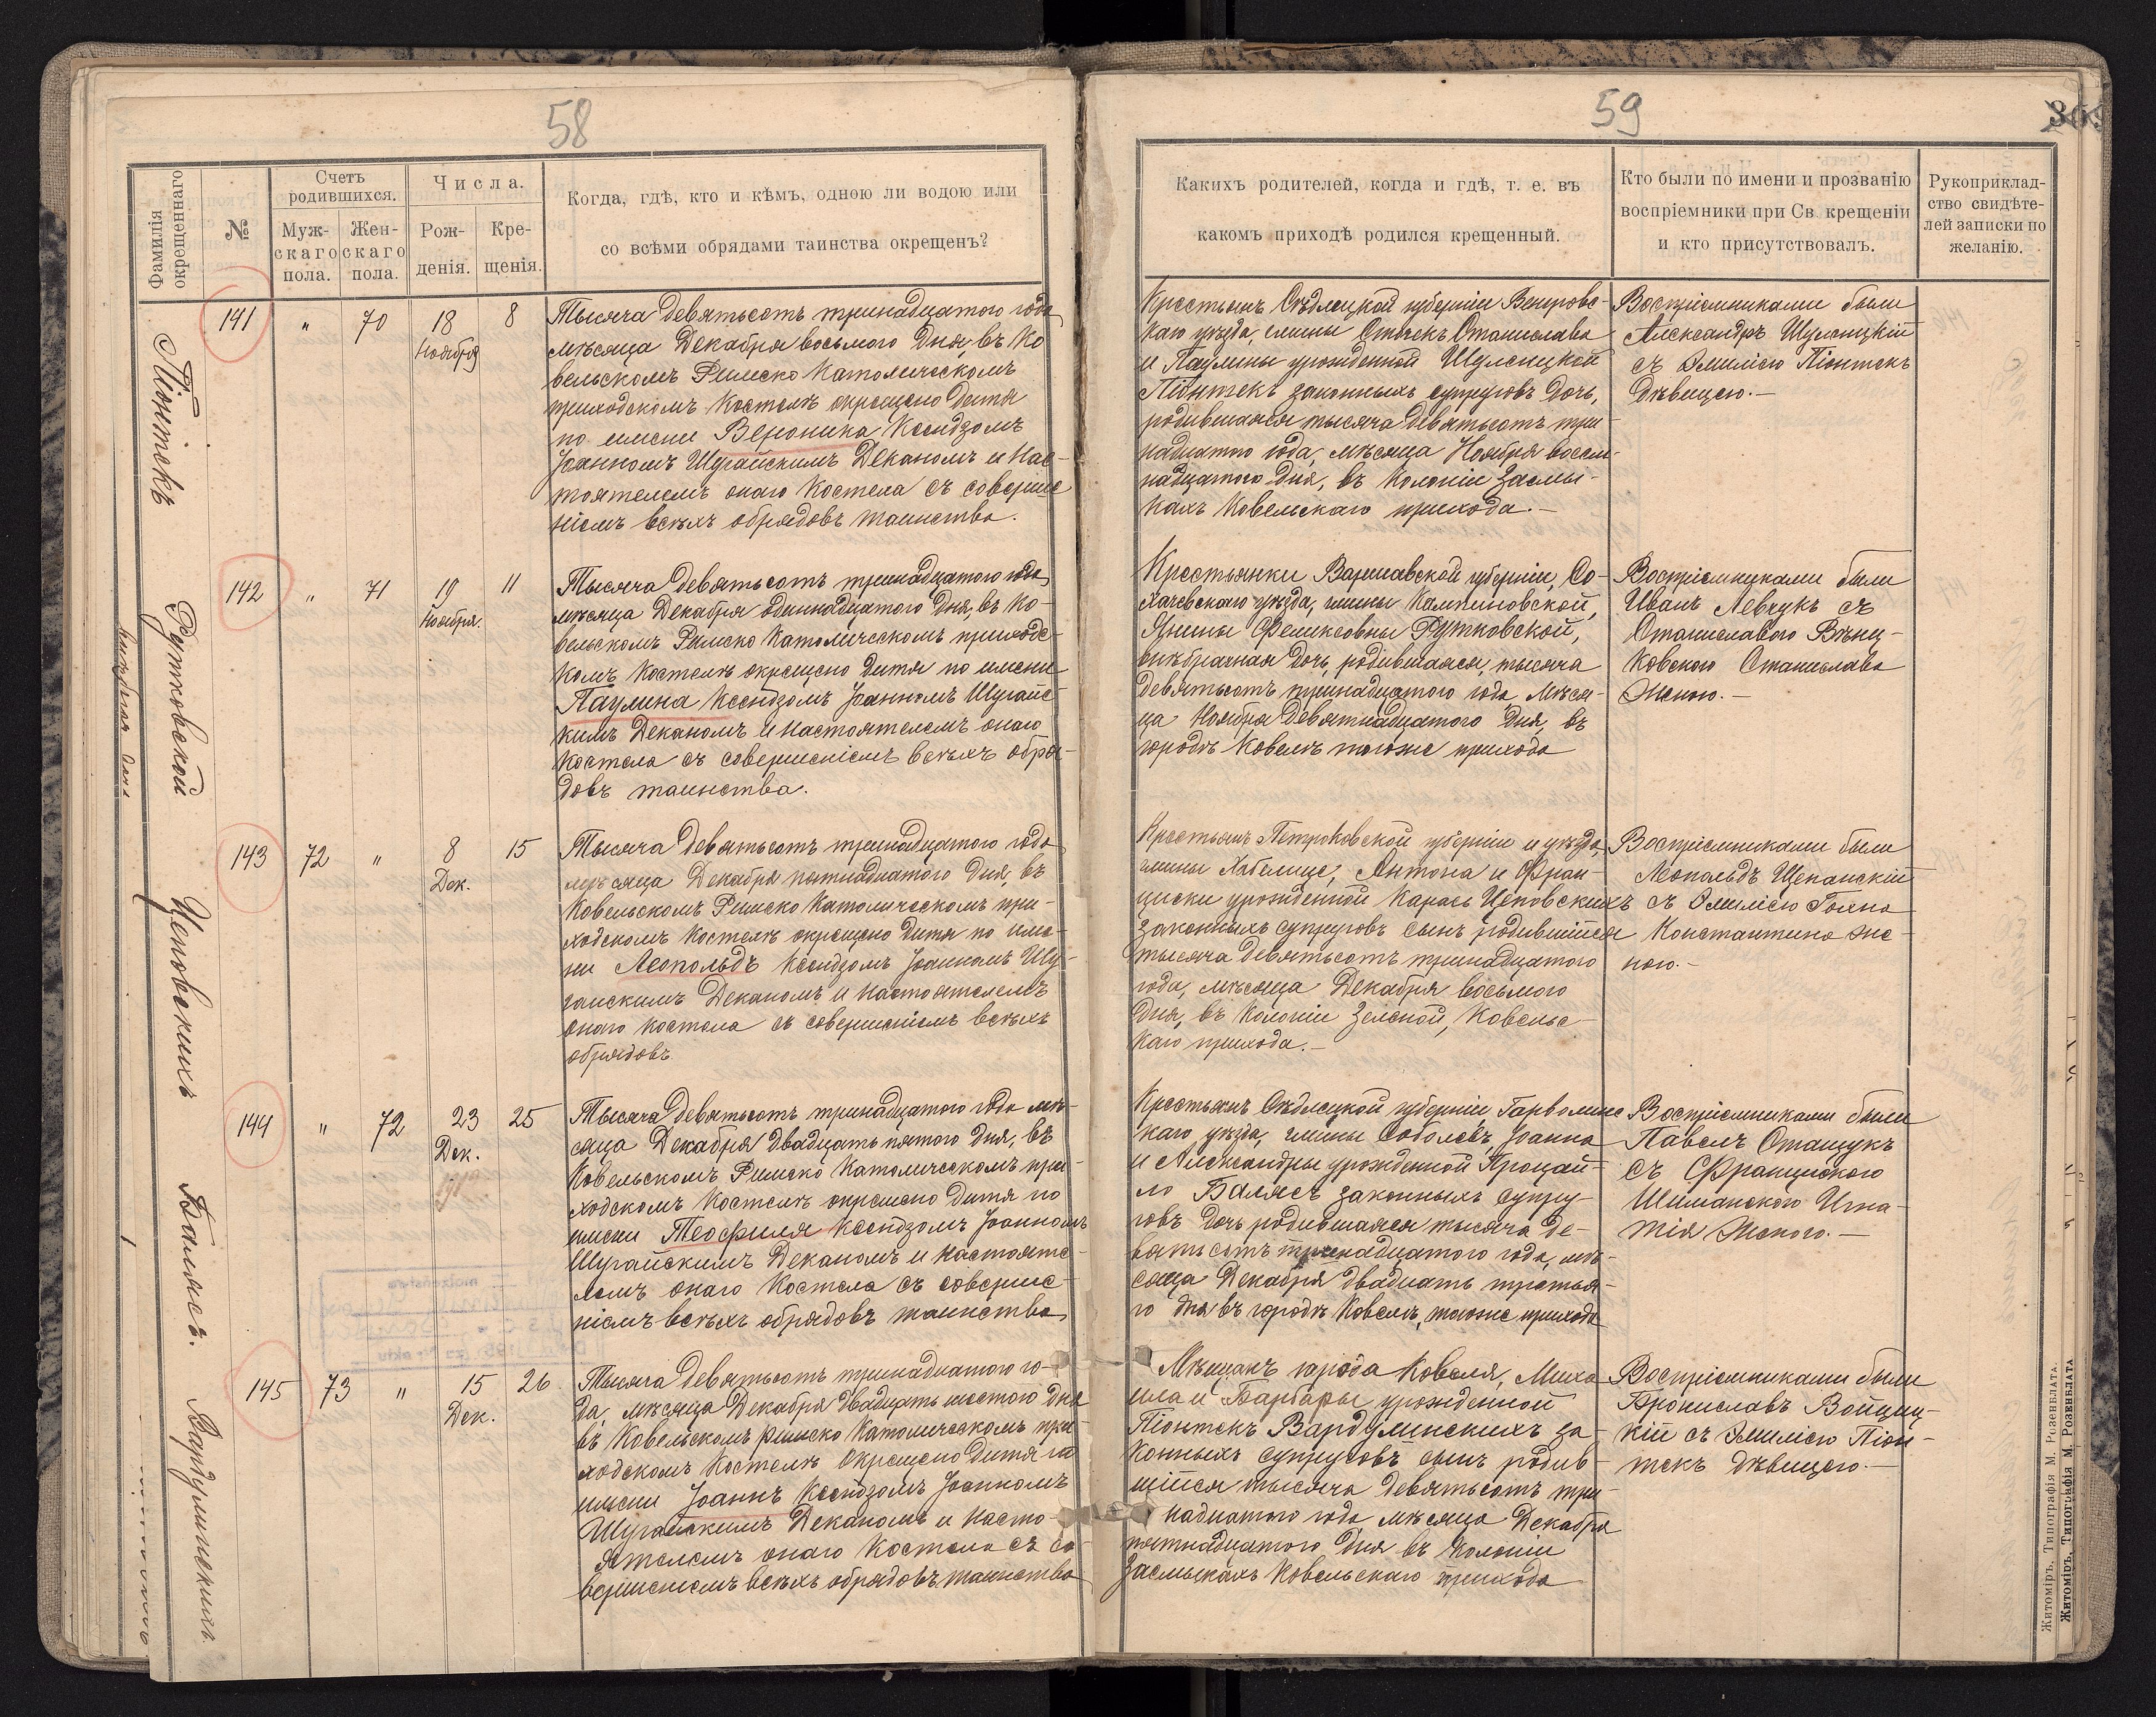 58
Фамилія
окрещеннаго
№
Счетъ
родившихся.
Муж-
скаго
пола.
Жен-
скаго
пола.
Числа.
Рож-
денія.
Кре-
щенія.
Когда, гдѣ, кто и кѣмъ, одною ли водою или
со всѣми обрядами таинства окрещенъ?
Піонтекъ
141
"
70
18
Ноября
8
Тысяча девятьсотъ тринадцатого года
мѣсяца Декабря восьмого дня, въ Ко
вельскомъ Римско Католическомъ
приходскомъ Костелѣ окрещено дитя
по имени Вероника Ксендзомъ
Іоанномъ Шугайскимъ Деканомъ и Нас-
тоятелемъ онаго Костела съ соверше
ніемъ всѣхъ обрядовъ таинства.
Рутковской
142
"
71
19
Ноября.
11
Тысяча девятьсотъ тринадцатого года
мѣсяца Декабря одиннадцатого дня, въ Ко-
вельскомъ Римско Католическомъ приходс-
комъ Костелѣ окрещено дитя по имени
Паулина Ксендзомъ Іоанномъ Шугайс
кимъ Деканомъ и Настоятелемъ онаго
Костела съ совершеніемъ всѣхъ обря-
довъ таинства.
Цеповскихъ
143
72
"
8
Дек.
15
Тысяча девятьсотъ тринадцатого года
мѣсяца Декабря пятнадцатого дня, въ
Ковельскомъ Римско Католическомъ при-
ходскомъ Костелѣ окрещено дитя по име-
ни Леопольдъ Ксендзомъ Іоанномъ Шу-
гайскимъ Деканомъ и Настоятелемъ
онаго костела съ совершеніемъ всѣхъ
обрядовъ
Балясъ.
144
"
72
23
Дек.
25
Тысяча девятьсотъ тринадцатого года мѣ-
сяца Декабря двадцать пятого дня, въ
Ковельскомъ Римско Католическомъ при-
ходскомъ Костелѣ окрещено дитя по
имени Теофиля Ксендзомъ Іоанномъ
Шугайскимъ Деканомъ и Настояте-
лемъ онаго Костела съ соверше-
ніемъ всѣхъ обрядовъ таинства
Вардулинскихъ
145
73
"
15
Дек.
26
Тысяча девятьсотъ тринадцатого го-
да, мѣсяца Декабря двадцать шестого дня
въ Ковельскомъ римско Католическомъ при-
ходскомъ Костелѣ окрещено дитя по
имени Іоаннъ Ксендзомъ Іоанномъ
Шугайскимъ Деканомъ и Насто-
ятелемъ онаго Костела съ со-
вершеніемъ всѣхъ обрядовъ таинства
59
Какихъ родителей, когда и гдѣ, т. е. въ
какомъ приходѣ родился крещенный.
Кто были по имени и прозванію
воспріемники при Св. крещеніи
и кто присутствовалъ.
Рукоприклад-
ство свидѣте-
лей записки по
желанію.
Крестьянъ Сѣдлецкой губерніи Венгровс-
каго уѣзда, гмины Станислава
и Паулины урожденной
Піонтекъ законныхъ супруговъ дочь,
родившаяся тысяча девятьсотъ три-
надцатого года, мѣсяца Ноября восем-
надцатого дня, въ Колоніи Засмы-
кахъ Ковельскаго прихода.-
Воспріемниками были
Александръ
съ Эмиліею Піонтекъ
дѣвицею.-
Крестьянки Варшавской губерніи, Со-
хачевскаго уѣзда, гмины Кампиновской,
Янины Феликсовны Рутковской,
внѣбрачная дочь, родившаяся, тысяча
девятьсотъ тринадцатого года, мѣся-
ца Ноября девятнадцатого дня, въ
городѣ Ковелѣ тогоже прихода
Воспріемниками были
Иванъ Левчукъ съ
Станиславою
Станислава
Женою.-
Крестьянъ Петроковской губерніи и уѣзда,
гмины Антона и Фран-
циски урожденной Карась Цеповскихъ
законныхъ супруговъ сынъ родившійся
тысяча девятьсотъ тринадцатого
года, мѣсяца Декабря восьмого
дня, въ Колоніи Зеленой, Ковельс-
каго прихода.-
Воспріемниками были
Леопольдъ Щепанскій
съ Эмиліею
Константина же-
ною.-
Крестьянъ Сѣдлецкой губерніи Гарволинс
каго уѣзда, гмины Соболевъ, Іоанна
и Александры урожденной Процай-
ло Балясъ законныхъ супру-
говъ дочь родившаяся тысяча де-
вятьсотъ тринадцатого года, мѣ-
сяца Декабря двадцать третья-
го дня въ городѣ Ковелѣ, тогоже прихода
Воспріемниками были
Павелъ Сташукъ
съ Францискою
Шиманскою Игна-
тія Женою.-
Мѣщанъ города Ковеля, Миха
ила и Барбары урожденной
Піонтекъ Вардулинскихъ за-
конныхъ супруговъ сынъ родив-
шійся тысяча девятьсотъ три-
надцатого года мѣсяца Декабря
пятнадцатого дня въ Колоніи
Засмыкахъ Ковельскаго прихода
Воспріемниками были
Брониславъ Войциц-
кій съ Эмиліею Піон-
текъ дѣвицею.-
Житоміръ, Типографія М. Розенблата.
Житоміръ, Типографія М. Розенблата